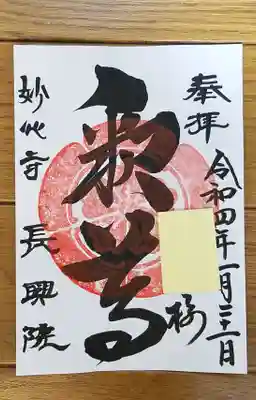 奉拝
令和四年一月
様
釈尊
妙心寺 長興院